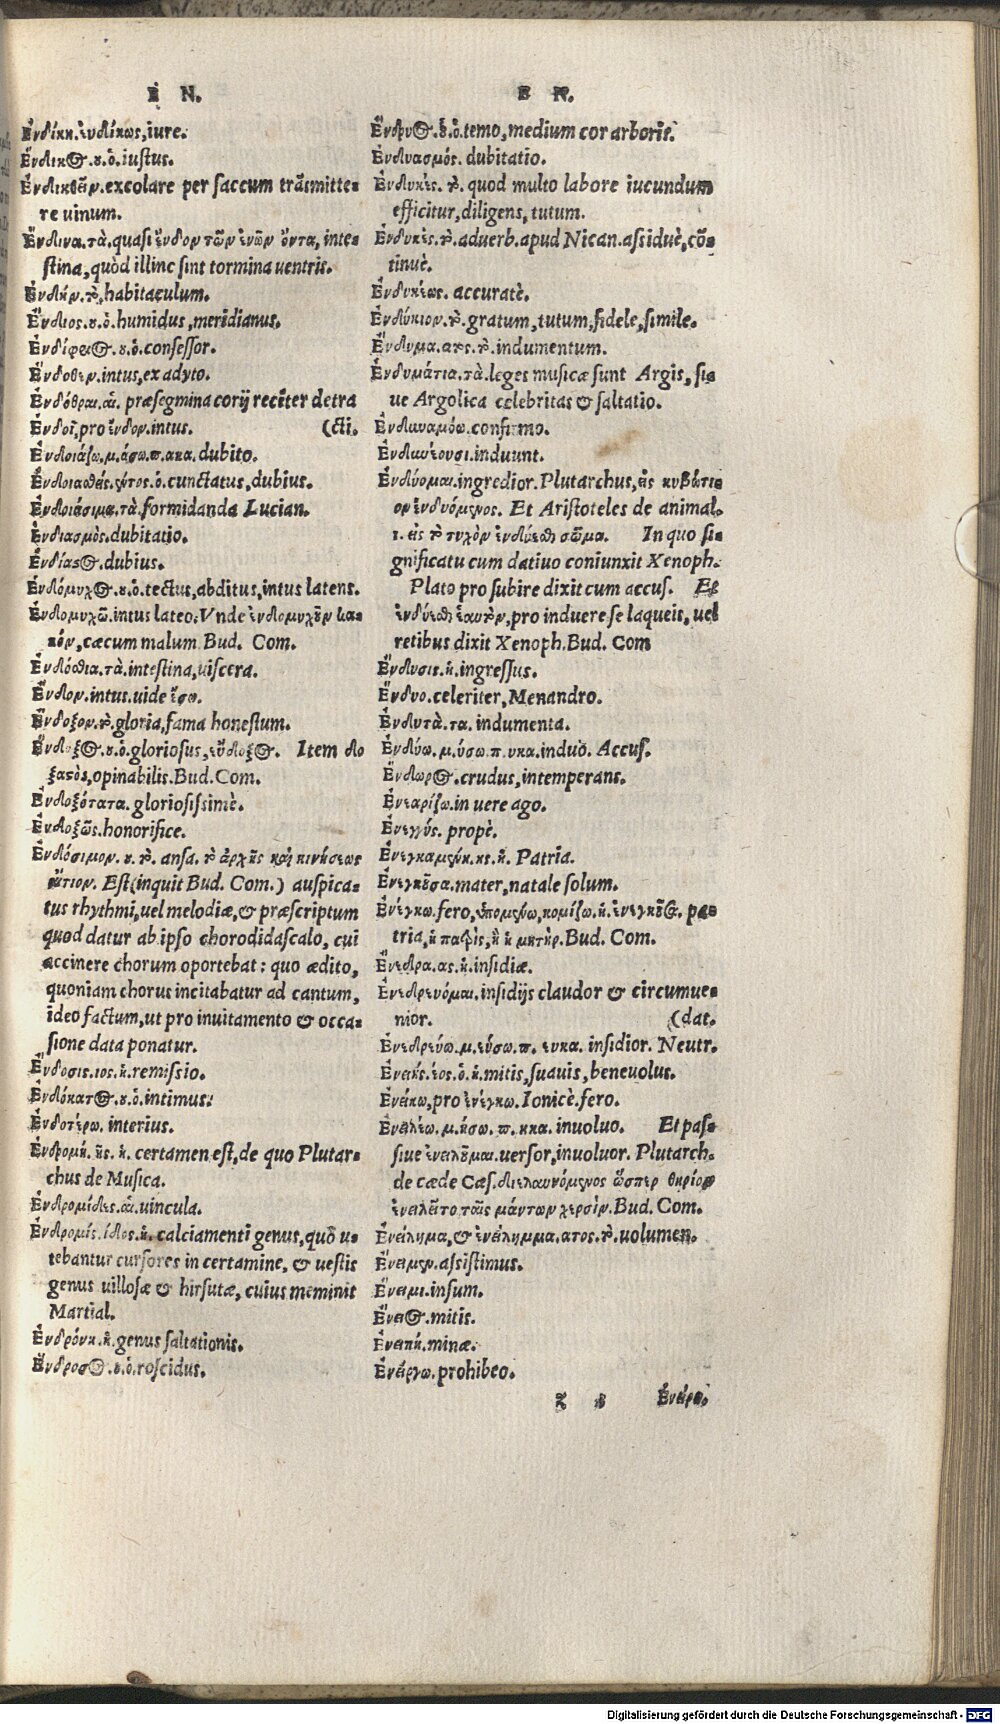 E N.
Ἐνδίκη.ἐνδίκως, iure.
Ἔνδικος.ου.ὁ.iustus.
Ἐνδικθεῖν.excolare per saccum trãsmitte-
re uinum.
Ἔνδινα.τὰ.quasi ἔνδον τῶν ἰνῶν ὄντα, inte-
stina, quòd illinc sint tormina uentris.
τὸ, habitaculum.
Ἔνδιος.ου.ὁ.humidus, meridianus.
Ἐνδίφρος.ου.ὁ.consessor.
Ἔνδοθεν.intus, ex adyto.
Ἐνδόθραι.αἱ. præsegmina corij reciter detra
Ἐνδοῖ, pro ἔνδον.intus. (cti.
Ἐνδοιάζω.μ.άσω.π.ακα.dubito.
Ἐνδοιασθείς.έντος.ὁ.cunctatus, dubius.
Ἐνδοιάσιμα.τὰ.formidanda Lucian.
Ἐνδιασμὸς.dubitatio.
Ἐνδίαστος.dubius.
Ἐνδόμυχος.ου.ὁ.tectus, abditus, intus latens.
Ἐνδομυχῶ.intus lateo.Vnde ἐνδομυχοῦν κα-
κόν, cæcum malum Bud. Com.
Ἐνδόσθια.τὰ.intestina, uiscera.
Ἔνδον.intus.uide ἔσω.
Ἔνδοξον.τὸ.gloria, fama honestum.
Ἔνδοξος.ου.ὁ.gloriosus, εὔδοξος. Item δο
ξαστὸς, opinabilis.Bud.Com.
Ἐνδοξότατα.gloriosissimè.
Ἐνδοξῶς.honorifice.
Ἐνδόσιμον.ου.τὸ. ansa. τὸ ἀρχῆς καὶ κινήσεως
αἴτιον. Est (inquit Bud. Com.) auspica-
tus rhythmi, uel melodiæ, & præscriptum
quod datur ab ipso chorodidascalo, cui
accinere chorum oportebat: quo ædito,
quoniam chorus incitabatur ad cantum,
ideo factum, ut pro inuitamento & occa-
sione data ponatur.
Ἔνδοσις.ιος.ἡ.remissio.
Ἐνδόκατος.ου.ὁ.intimus.
Ἐνδοτέρω. interius.
Ἐνδρομή.ῆς.ἡ. certamen est, de quo Plutar-
chus de Musica.
Ἐνδρομίδες.αἱ.uincula.
Ἐνδρομίς.ίδος.ἡ. calciamenti genus, quo u-
tebantur cursores in certamine, & uestis
genus uillosæ & hirsutæ, cuius meminit
Martial.
Ἐνδρόνη.ἡ.genus saltationis.
Ἔνδροσος.ου.ὁ.roscidus.
E N.
Ἔνδρυος.ου.ὁ.temo, medium cor arboris.
Ἐνδυασμός. dubitatio.
Ἐνδυκές. τὸ. quod multo labore iucundum
efficitur, diligens, tutum.
Ἐνδυκές.τὸ.aduerb.apud Nican.assiduè, cõ-
tinuè.
Ἐνδυκέως. accuratè.
Ἐνδύκιον.τὸ.gratum, tutum, fidele, simile.
Ἔνδυμα.ατος.τὸ.indumentum.
Ἐνδυμάτια.τὰ.leges musicæ sunt Argis, si-
ue Argolica celebritas & saltatio.
Ἐνδυναμόω.confirmo.
Ἐνδυνέουσι.induunt.
Ἐνδύομαι.ingredior.Plutarchus, εἰς κιβώτι-
ον ἐνδυόμενος. Et Aristoteles de animal.
1. εἰς τὸ τυχὸν ἐνδύεσθαι σῶμα. In quo si-
gnificatu cum datiuo coniunxit Xenoph.
Plato pro subire dixit cum accus. Et
ἐνδύεσθαι ἑαυτὸν, pro induere se laqueis, uel
retibus dixit Xenoph.Bud. Com
Ἔνδυσις.ἡ.ingressus.
Ἔνδυο.celeriter, Menandro.
Ἐνδυτὰ.τα. indumenta.
Ἐνδύω.μ.ύσω.π.υκα.induo. Accus.
Ἔνδωρος.crudus, intemperans.
Ἐνεαρίζω.in uere ago.
Ἐνεγγύς. propè.
Ἐνεγκαμένη.ης.ἡ. Patria.
Ἐνεγκοῦσα.mater, natale solum.
Ἐνέγκω.fero, ὑπομένω, κομίζω.ἡ.ἐνεγκοῦσα. pa-
tria, ἡ πατρὶς, ἢ ἡ μητήρ.Bud. Com.
Ἐνέδρα.ας.ἡ.insidiæ.
Ἐνεδρεύομαι.insidijs claudor & circumue-
nior. (dat.
Ἐνεδρεύω.μ.εύσω.π. ευκα. insidior. Neutr.
Ἐνεής.έος.ὁ.ἡ.mitis, suauis, beneuolus.
Ἐνείκω, pro ἐνέγκω.Ionicè.fero.
Ἐνειλέω.μ.ήσω. π. ηκα. inuoluo. Et pas-
siue ἐνειλοῦμαι.uersor, inuoluor. Plutarch.
de cæde Cæs. διελαυνόμενος ὥσπερ θηρίον
ἐνειλεῖτο ταῖς πάντων χερσὶν.Bud. Com.
Ἐνείλημα, & ἐνείλημμα.ατος.τὸ.uolumen.
Ἔνειμεν.assistimus.
Ἔνειμι.insum.
Ἔνειος.mitis.
Ἐνειπή.minæ.
Ἐνείργω.prohibeo.
z Ἐνείρο.
Digitalisierung gefördert durch die Deutsche Forschungsgemeinschaft - DFG